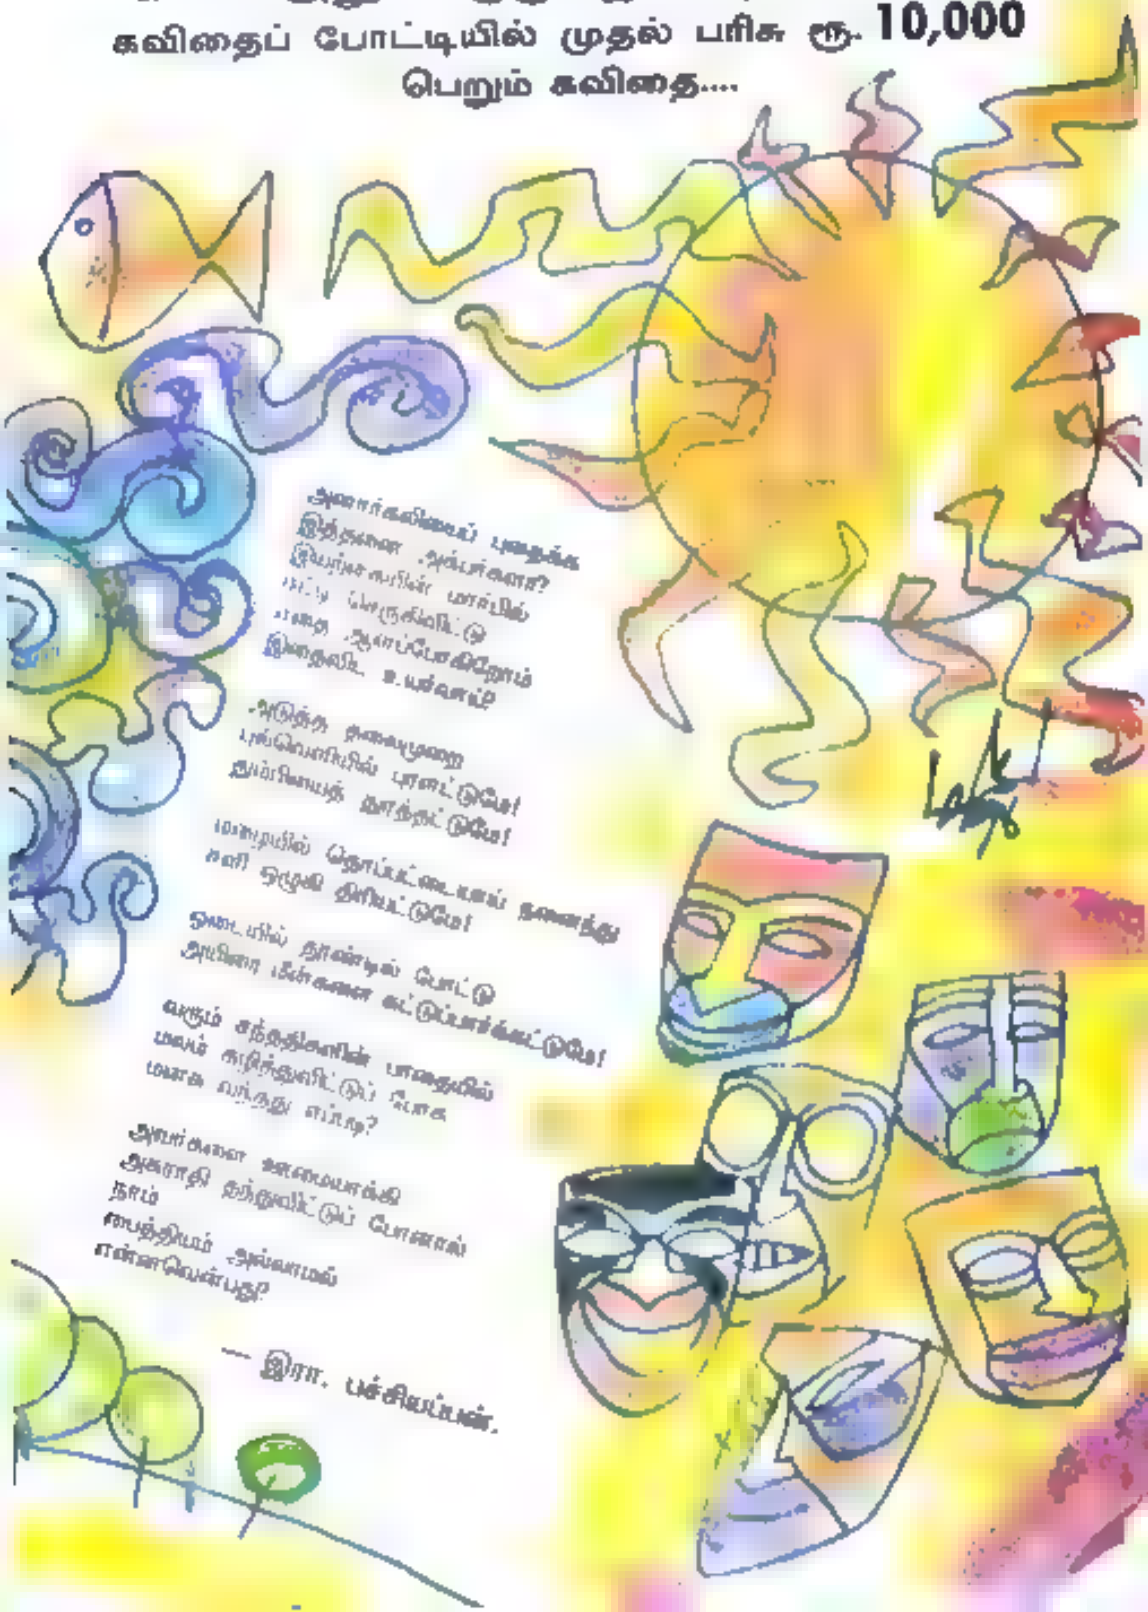 கவிதைப் போட்டியில் முதல் பரிசு ரூ. 10,000
பெறும் கவிதை....
அனார்கலியைப் புதைக்க
இத்தனை அக்பர்களா?
இயற்கையின் மார்பில்
இதைவிட உயர்வாய்?
அடுத்த தலைமுறை
புல்வெளியில் புரளட்டுமே!
தும்பியைத் துரத்தட்டுமே!
மழையில் தொப்பட்டையாய் நனைந்து
சளி ஒழுகி திரியட்டுமே!
ஓடையில் தூண்டில் போட்டு
அயிரை மீன்களை சுட்டுப்பார்க்கட்டுமே!
வரும் சந்ததிகளின் பாதையில்
மலம் கழித்துவிட்டுப் போக
மனசு வந்தது எப்படி?
அவர்களை ஊமையாக்கி
அகராதி தந்துவிட்டுப் போனால்
நாம்
பைத்தியம் அல்லாமல்
என்னவென்பது?
— இரா. பச்சியப்பன்.